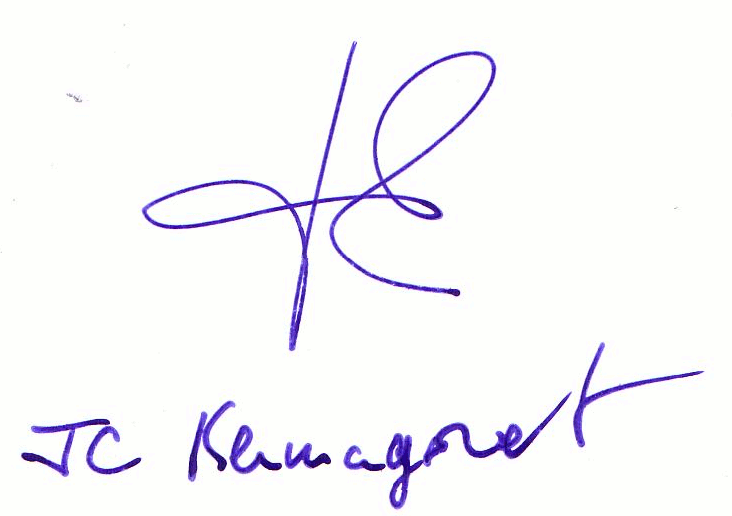 JC Kermagoret